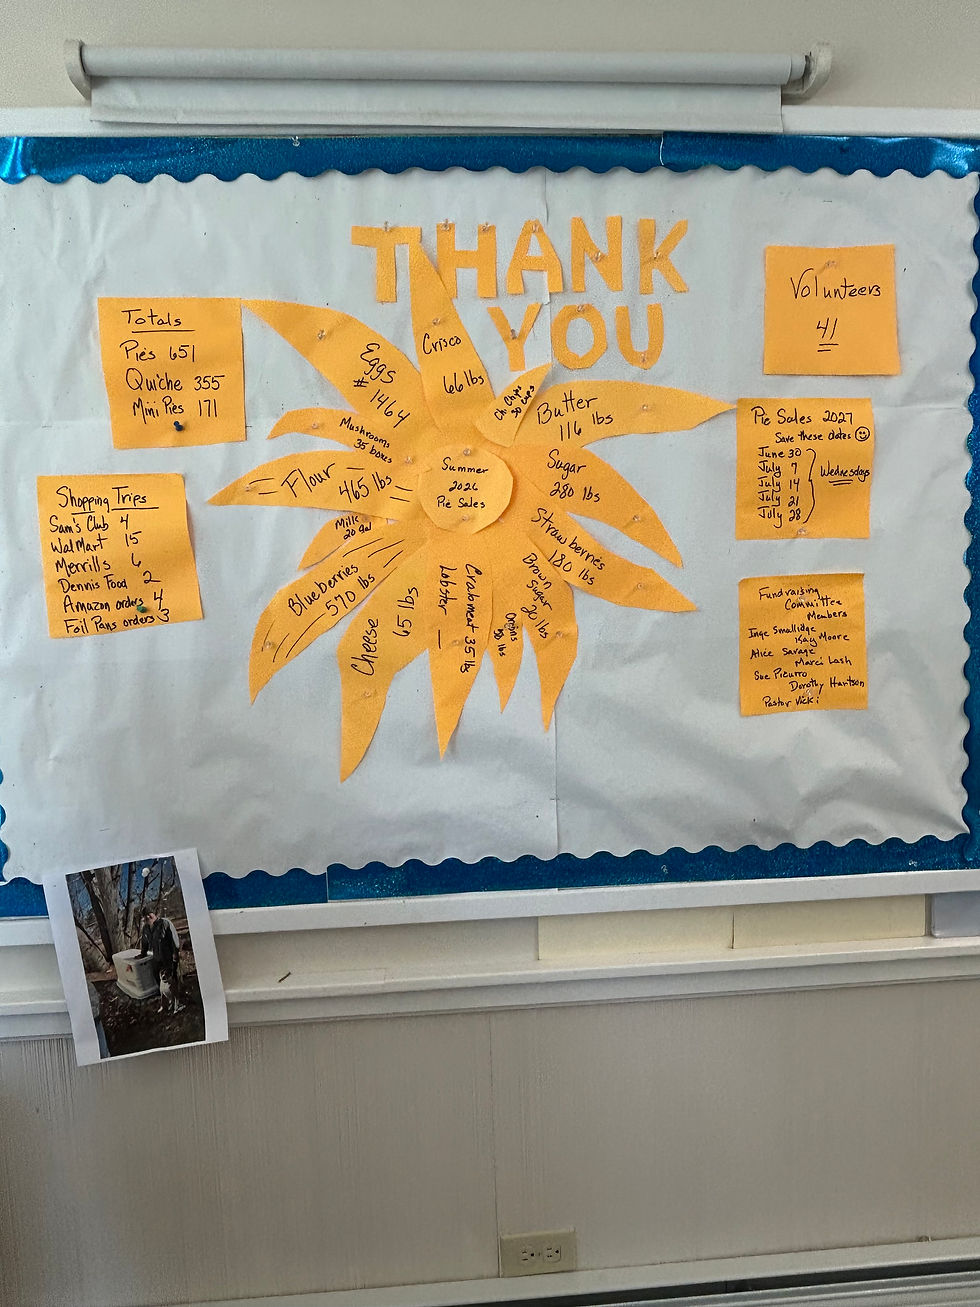 THANK
YOU
Totals
Pies 651
Quiche 355
Mini Pies 171
Shopping Trips
Sam's Club 4
WalMart 15
Merrills 6
Dennis Food 2
Amazon orders 4
Foil Pans orders 3
Summer
2026
Pie Sales
Crisco
66 lbs
Ch. Chips
30 cups
Butter
116 lbs
Sugar
280 lbs
Strawberries
180 lbs
Brown
Sugar
20 lbs
Onions
50 lbs
Crabmeat 35 lbs
Lobster
Cheese 65 lbs
Blueberries
570 lbs
Milk
20 gal
Flour
465 lbs
Mushrooms
35 boxes
Eggs
# 1464
Volunteers
41
Pie Sales 2027
Save these dates
June 30
July 7
July 14
July 21
July 28
Wednesdays
Fundraising
Committee
Members
Inge Smallidge
Kay Moore
Alice Savage
Marci Lash
Sue Pizurro
Dorothy Hartson
Pastor Vicki